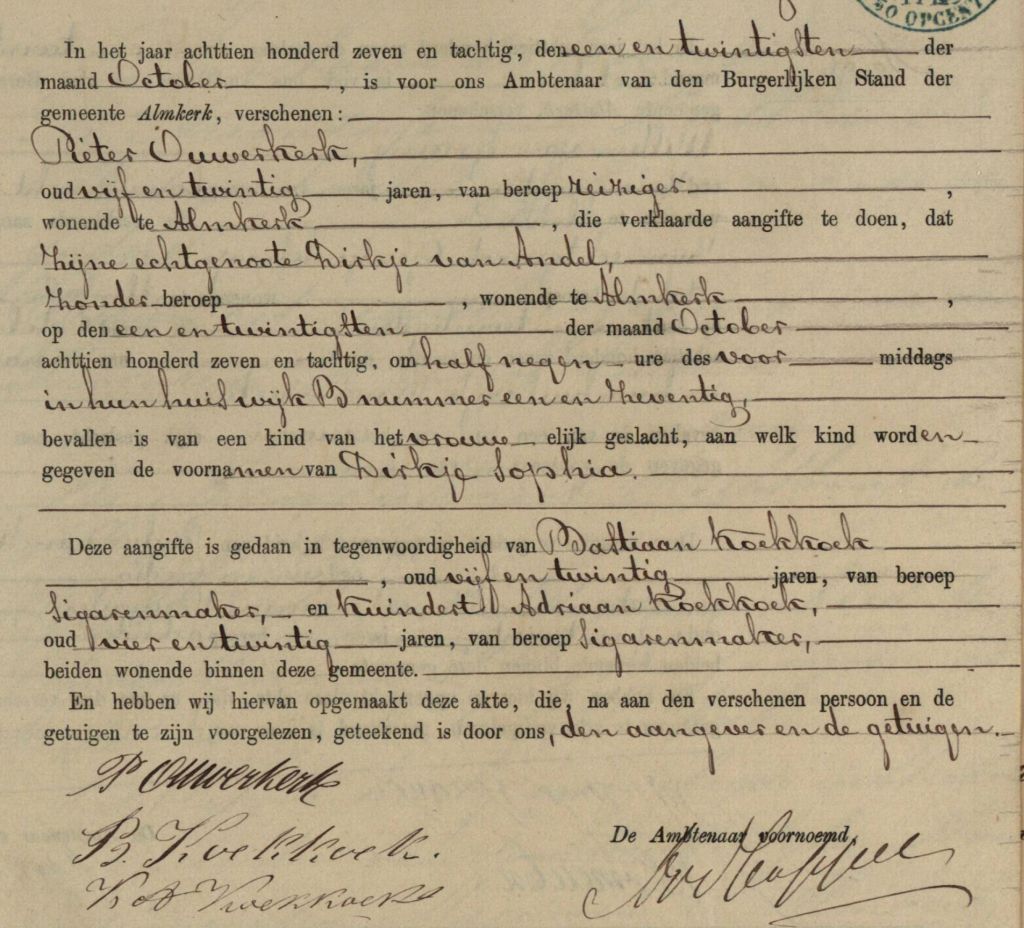 50 OPCENT
In het jaar achttien honderd zeven en tachtig, den een en twintigsten der
maand October, is voor ons Ambtenaar van den Burgerlijken Stand der
gemeente Almkerk, verschenen:
Pieter Ouwerkerk,
oud vijf en twintig jaren, van beroep reiziger,
wonende te Almkerk, die verklaarde aangifte te doen, dat
zijne echtgenoote Dirkje van Andel,
zonder beroep, wonende te Almkerk,
op den een en twintigsten der maand October
achttien honderd zeven en tachtig, om half negen ure des voor middags
in hun huis wijk B nummer een en zeventig,
bevallen is van een kind van het vrouwelijk geslacht, aan welk kind worden
gegeven de voornamen van Dirkje Sophia.
Deze aangifte is gedaan in tegenwoordigheid van Bastiaan Koekkoek
, oud vijf en twintig jaren, van beroep
sigarenmaker, en Kuindert Adriaan Koekkoek,
oud vier en twintig jaren, van beroep sigarenmaker,
beiden wonende binnen deze gemeente.
En hebben wij hiervan opgemaakt deze akte, die, na aan den verschenen persoon en de
getuigen te zijn voorgelezen, geteekend is door ons, den aangever en de getuigen.
P Ouwerkerk
B. Koekkoek.
K A Koekkoek
De Ambtenaar voornoemd,